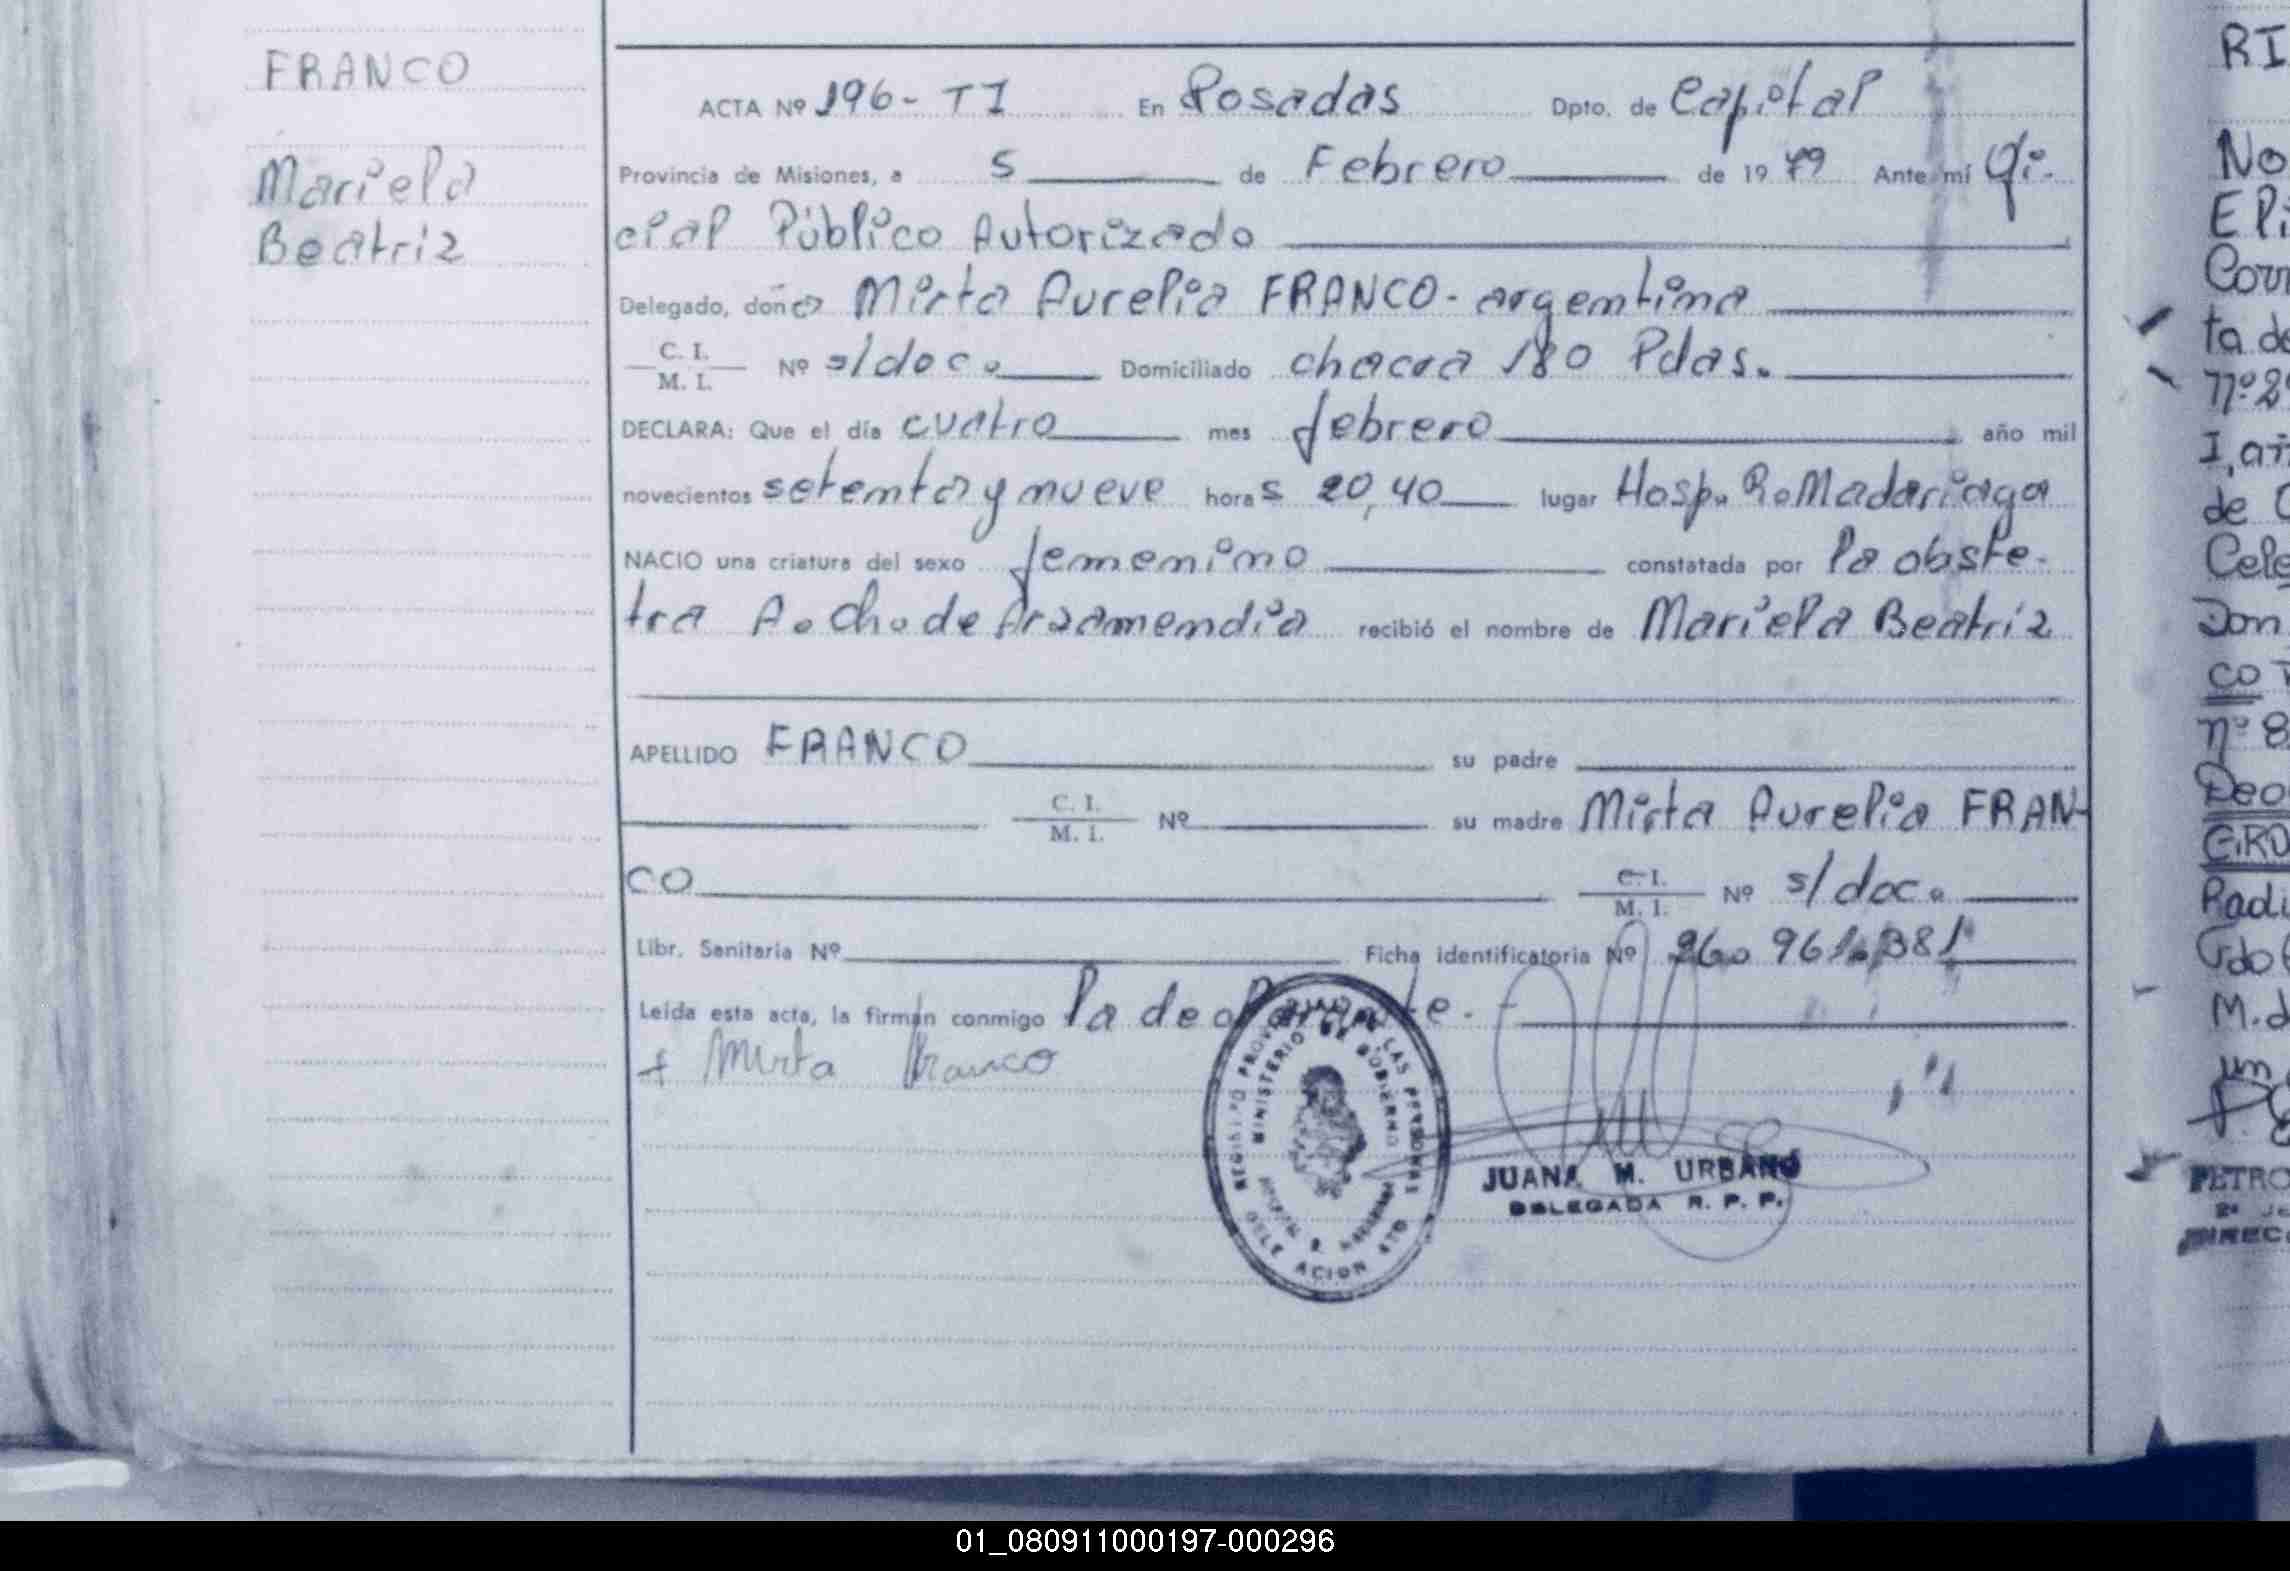 FRANCO
Mariela
Beatriz
ACTA Nº 196- TI En Posadas Dpto. de Capital
Provincia de Misiones, a 5 de Febrero de 1979 Ante mí Ofi-
cial Público Autorizado
Delegado, doña Mirta Aurelia FRANCO- argentina
C. I. / M. I. Nº s/doc. Domiciliado chacra 180 Pdas.
DECLARA: Que el día cuatro mes febrero año mil
novecientos setenta y nueve horas 20,40 lugar Hosp. R. Madariaga
NACIO una criatura del sexo femenino constatada por la obste-
tra A. Ch. de Arzamendia recibió el nombre de Mariela Beatriz
APELLIDO FRANCO su padre
C. I. / M. I. Nº su madre Mirta Aurelia FRAN-
CO C. I. / M. I. Nº s/doc.
Libr. Sanitaria Nº Ficha identificatoria Nº 26. 961.381
Leída esta acta, la firman conmigo la declarante.-
+ Mirta Franco
REGISTRO PROVINCIAL DE LAS PERSONAS
MINISTERIO DE GOBIERNO
DELEGACION
JUANA M. URBANO
DELEGADA R. P. P.
RI
No
Eli
Corr
ta de
nº 2
I, añ
de C
Cele
Don
co
nº 8
Deo
GRO
Radi
Gdo
M. d
un
PETRO
2º Je
DIREC
01_080911000197-000296